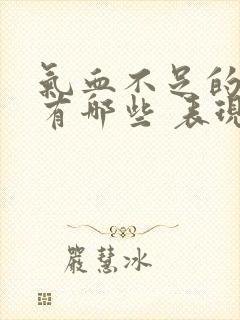 氣血不足的
有哪些 表現
嚴慧冰